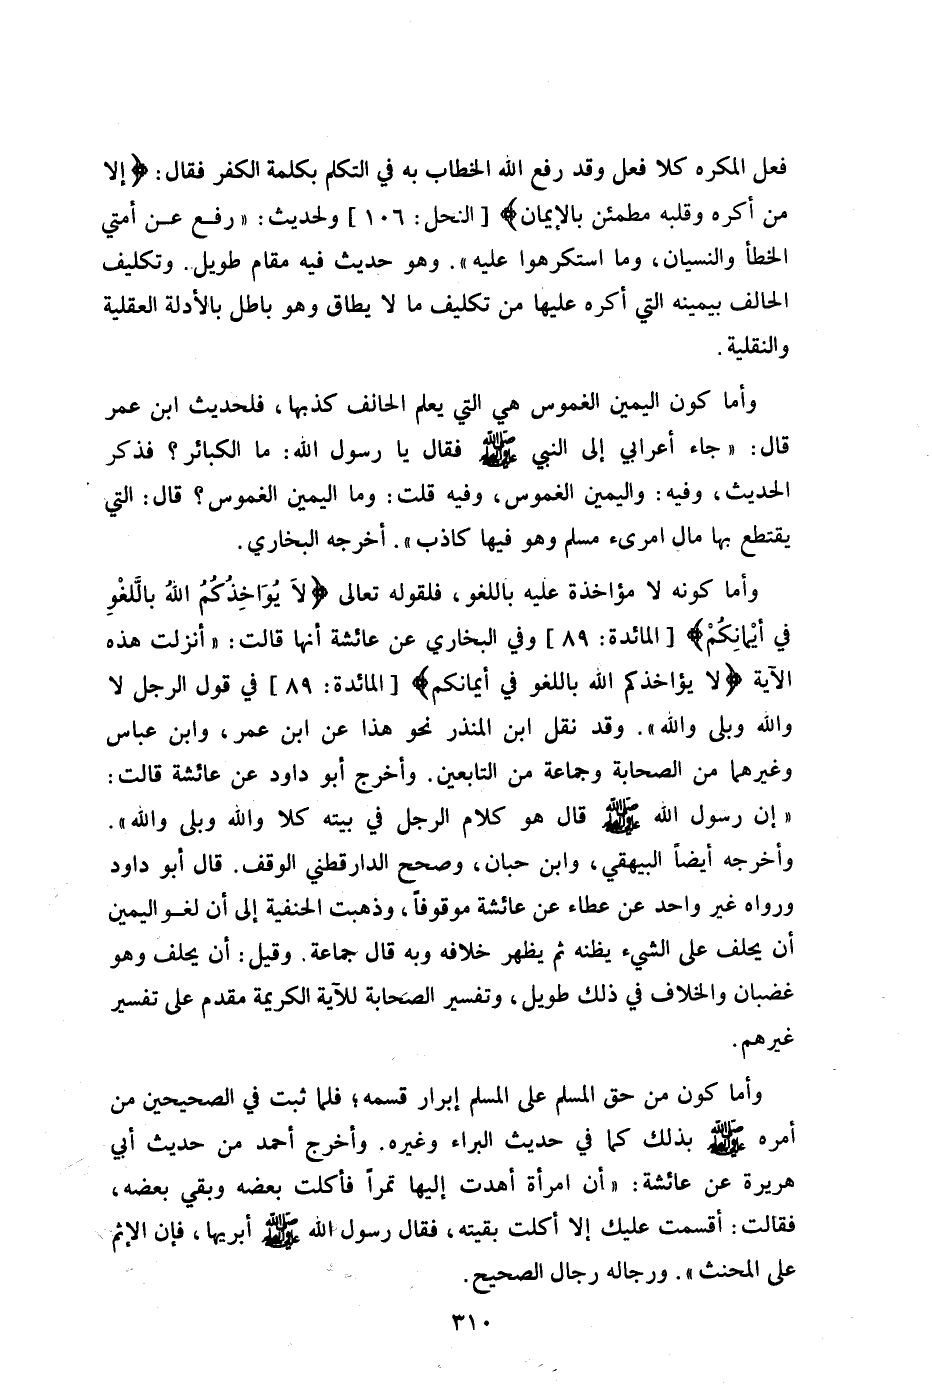 فعل المكره كلا فعل وقد رفع الله الخطاب به في التكلم بكلمة الكفر فقال: ﴿إلا
من أكره وقلبه مطمئن بالإيمان﴾ [ النحل: ١٠٦ ] ولحديث: « رفـع عـن أمتي
الخطأ والنسيان، وما استكرهوا عليه ». وهو حديث فيه مقام طويل. وتكليف
الحالف بيمينه التي أكره عليها من تكليف ما لا يطاق وهو باطل بالأدلة العقلية
والنقلية.
وأما كون اليمين الغموس هي التي يعلم الحالف كذبها، فلحديث ابن عمر
قال: « جاء أعرابي إلى النبي ﷺ فقال يا رسول الله: ما الكبائر؟ فذكر
الحديث، وفيه: واليمين الغموس، وفيه قلت: وما اليمين الغموس؟ قال: التي
يقتطع بها مال امرىء مسلم وهو فيها كاذب ». أخرجه البخاري.
وأما كونه لا مؤاخذة عليه باللغو، فلقوله تعالى ﴿لاَ يُوَاخِذُكُمُ اللهُ بالَّلغْوِ
في أَيْمَانِكُمْ﴾ [ المائدة: ٨٩ ] وفي البخاري عن عائشة أنها قالت: « أنزلت هذه
الآية ﴿لا يؤاخذكم الله باللغو في أيمانكم﴾ [ المائدة: ٨٩ ] في قول الرجل لا
والله وبلى والله ». وقد نقل ابن المنذر نحو هذا عن ابن عمر، وابن عباس
وغيرهما من الصحابة وجماعة من التابعين. وأخرج أبو داود عن عائشة قالت:
« إن رسول الله ﷺ قال هو كلام الرجل في بيته كلا والله وبلى والله ».
وأخرجه أيضاً البيهقي، وابن حبان، وصحح الدارقطني الوقف. قال أبو داود
ورواه غير واحد عن عطاء عن عائشة موقوفاً، وذهبت الحنفية إلى أن لغـو اليمين
أن يحلف على الشيء يظنه ثم يظهر خلافه وبه قال جماعة. وقيل: أن يحلف وهو
غضبان والخلاف في ذلك طويل، وتفسير الصحابة للآية الكريمة مقدم على تفسير
غيرهم.
وأما كون من حق المسلم على المسلم إبرار قسمه؛ فلما ثبت في الصحيحين من
أمره ﷺ بذلك كما في حديث البراء وغيره. وأخرج أحمد من حديث أبي
هريرة عن عائشة: « أن امرأة أهدت إليها تمراً فأكلت بعضه وبقي بعضه،
فقالت: أقسمت عليك إلا أكلت بقيته، فقال رسول الله ﷺ أبريها، فإن الإثم
على المحنث ». ورجاله رجال الصحيح.
٣١٠